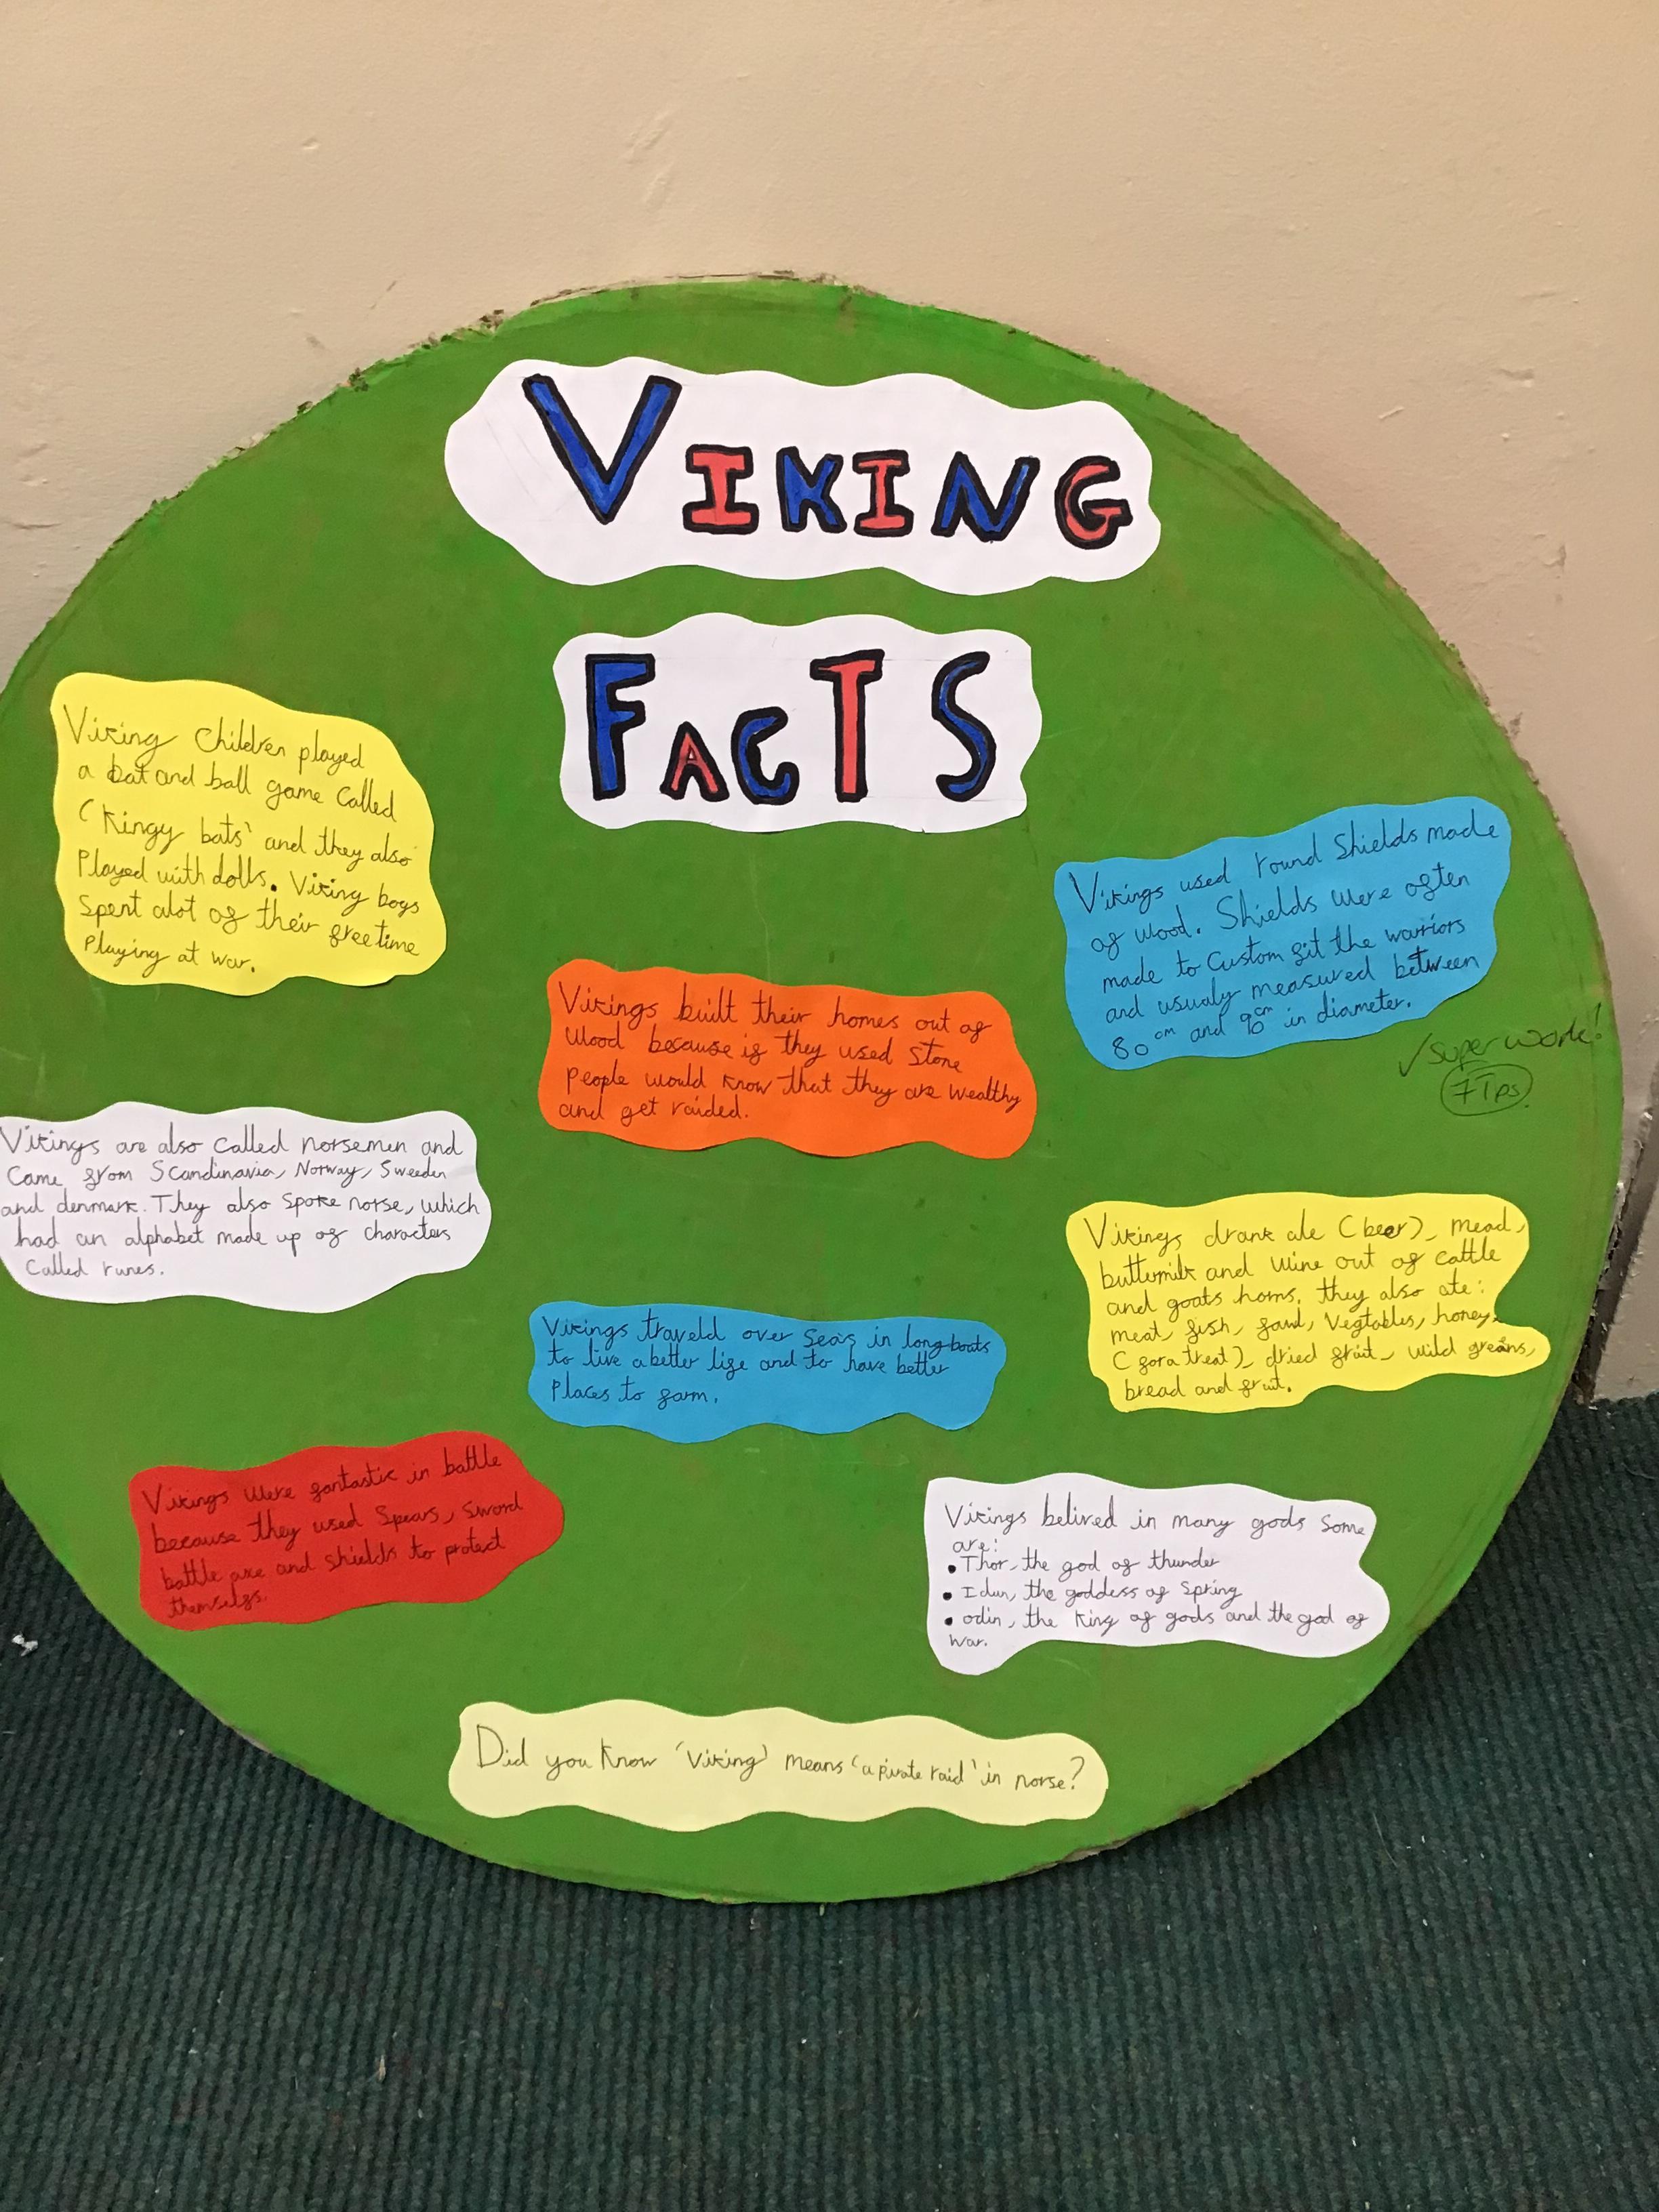 VIKING
FACTS
Viking Children played
a bat and ball game called
'Kingy bats' and they also
Played with dolls. Viking boys
Spent alot of their freetime
Playing at war.
Vikings used round Shields made
of wood. Shields were often
made to Custom fit the warriors
and usualy measured between
80cm and 90cm in diameter.
✓super work!
7Tps
Vikings built their homes out of
wood because if they used Stone
People would know that they are wealthy
and get raided.
Vikings are also called norsemen and
Came from Scandinavia, Norway, Sweeden
and denmark. They also Spoke norse, which
had an alphabet made up of characters
Called runes.
Vikings drank ale (beer), mead,
buttermilk and wine out of cattle
and goats horns. they also ate:
meat, fish, fowl, Vegtables, honey
(for a treat), dried fruit, wild greens,
bread and fruit.
Vikings traveld over seas in long boats
to live a better life and to have better
Places to farm.
Vikings were fantastic in battle
because they used Spears, Sword
battle axe and shields to protect
themselfs.
Vikings belived in many gods Some
are:
• Thor, the god of thunder
• Idun, the goddess of Spring
• odin, the King of gods and the god of
war.
Did you Know 'Viking' means 'a pirate raid' in norse?